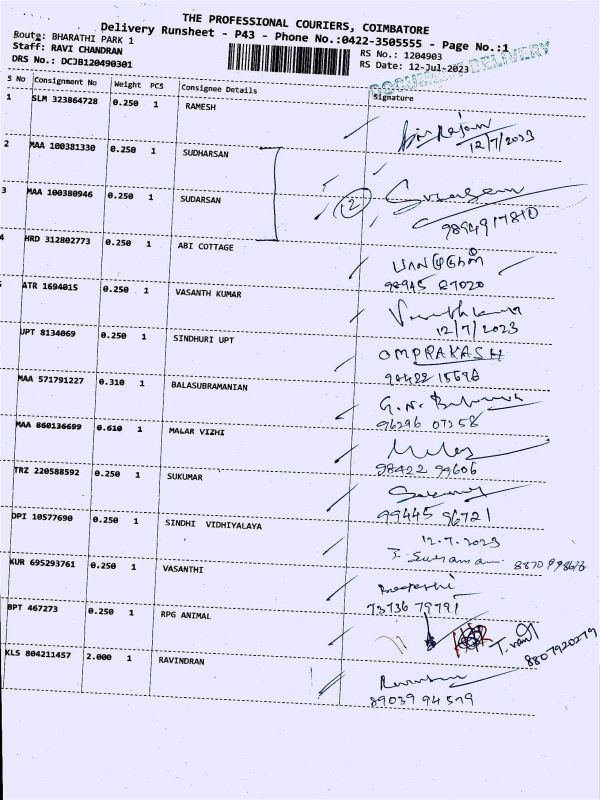 THE PROFESSIONAL COURIERS, COIMBATORE
Delivery Runsheet - P43 - Phone No.:0422-3505555 - Page No.:1
Route: BHARATHI PARK 1
RS No.: 1204903
Staff: RAVI CHANDRAN
RS Date: 12-Jul-2023
DRS No.: DCJB120490301
DOCUMENT DELIVERY
S No Consignment No Weight PCS Consignee Details Signature
1 SLM 323864728 0.250 1 RAMESH
12/7/2023
2 MAA 100381330 0.250 1 SUDHARSAN
3 MAA 100380946 0.250 1 SUDARSAN
2
9894917810
4 HRD 312802773 0.250 1 ABI COTTAGE
98945 87020
ATR 1694015 0.250 1 VASANTH KUMAR
12/7/2023
UPT 8134069 0.250 1 SINDHURI UPT OMPRAKASH
MAA 571791227 0.310 1 BALASUBRAMANIAN
96296 07258
MAA 860136699 0.610 1 MALAR VIZHI
98422 99606
TRZ 220588592 0.250 1 SUKUMAR
99445 96721
DPI 10577690 0.250 1 SINDHI VIDHIYALAYA
12.7.2023
KUR 695293761 0.250 1 VASANTHI
73736 79791
BPT 467273 0.250 1 RPG ANIMAL
8807920279
KLS 804211457 2.000 1 RAVINDRAN
89039 94579